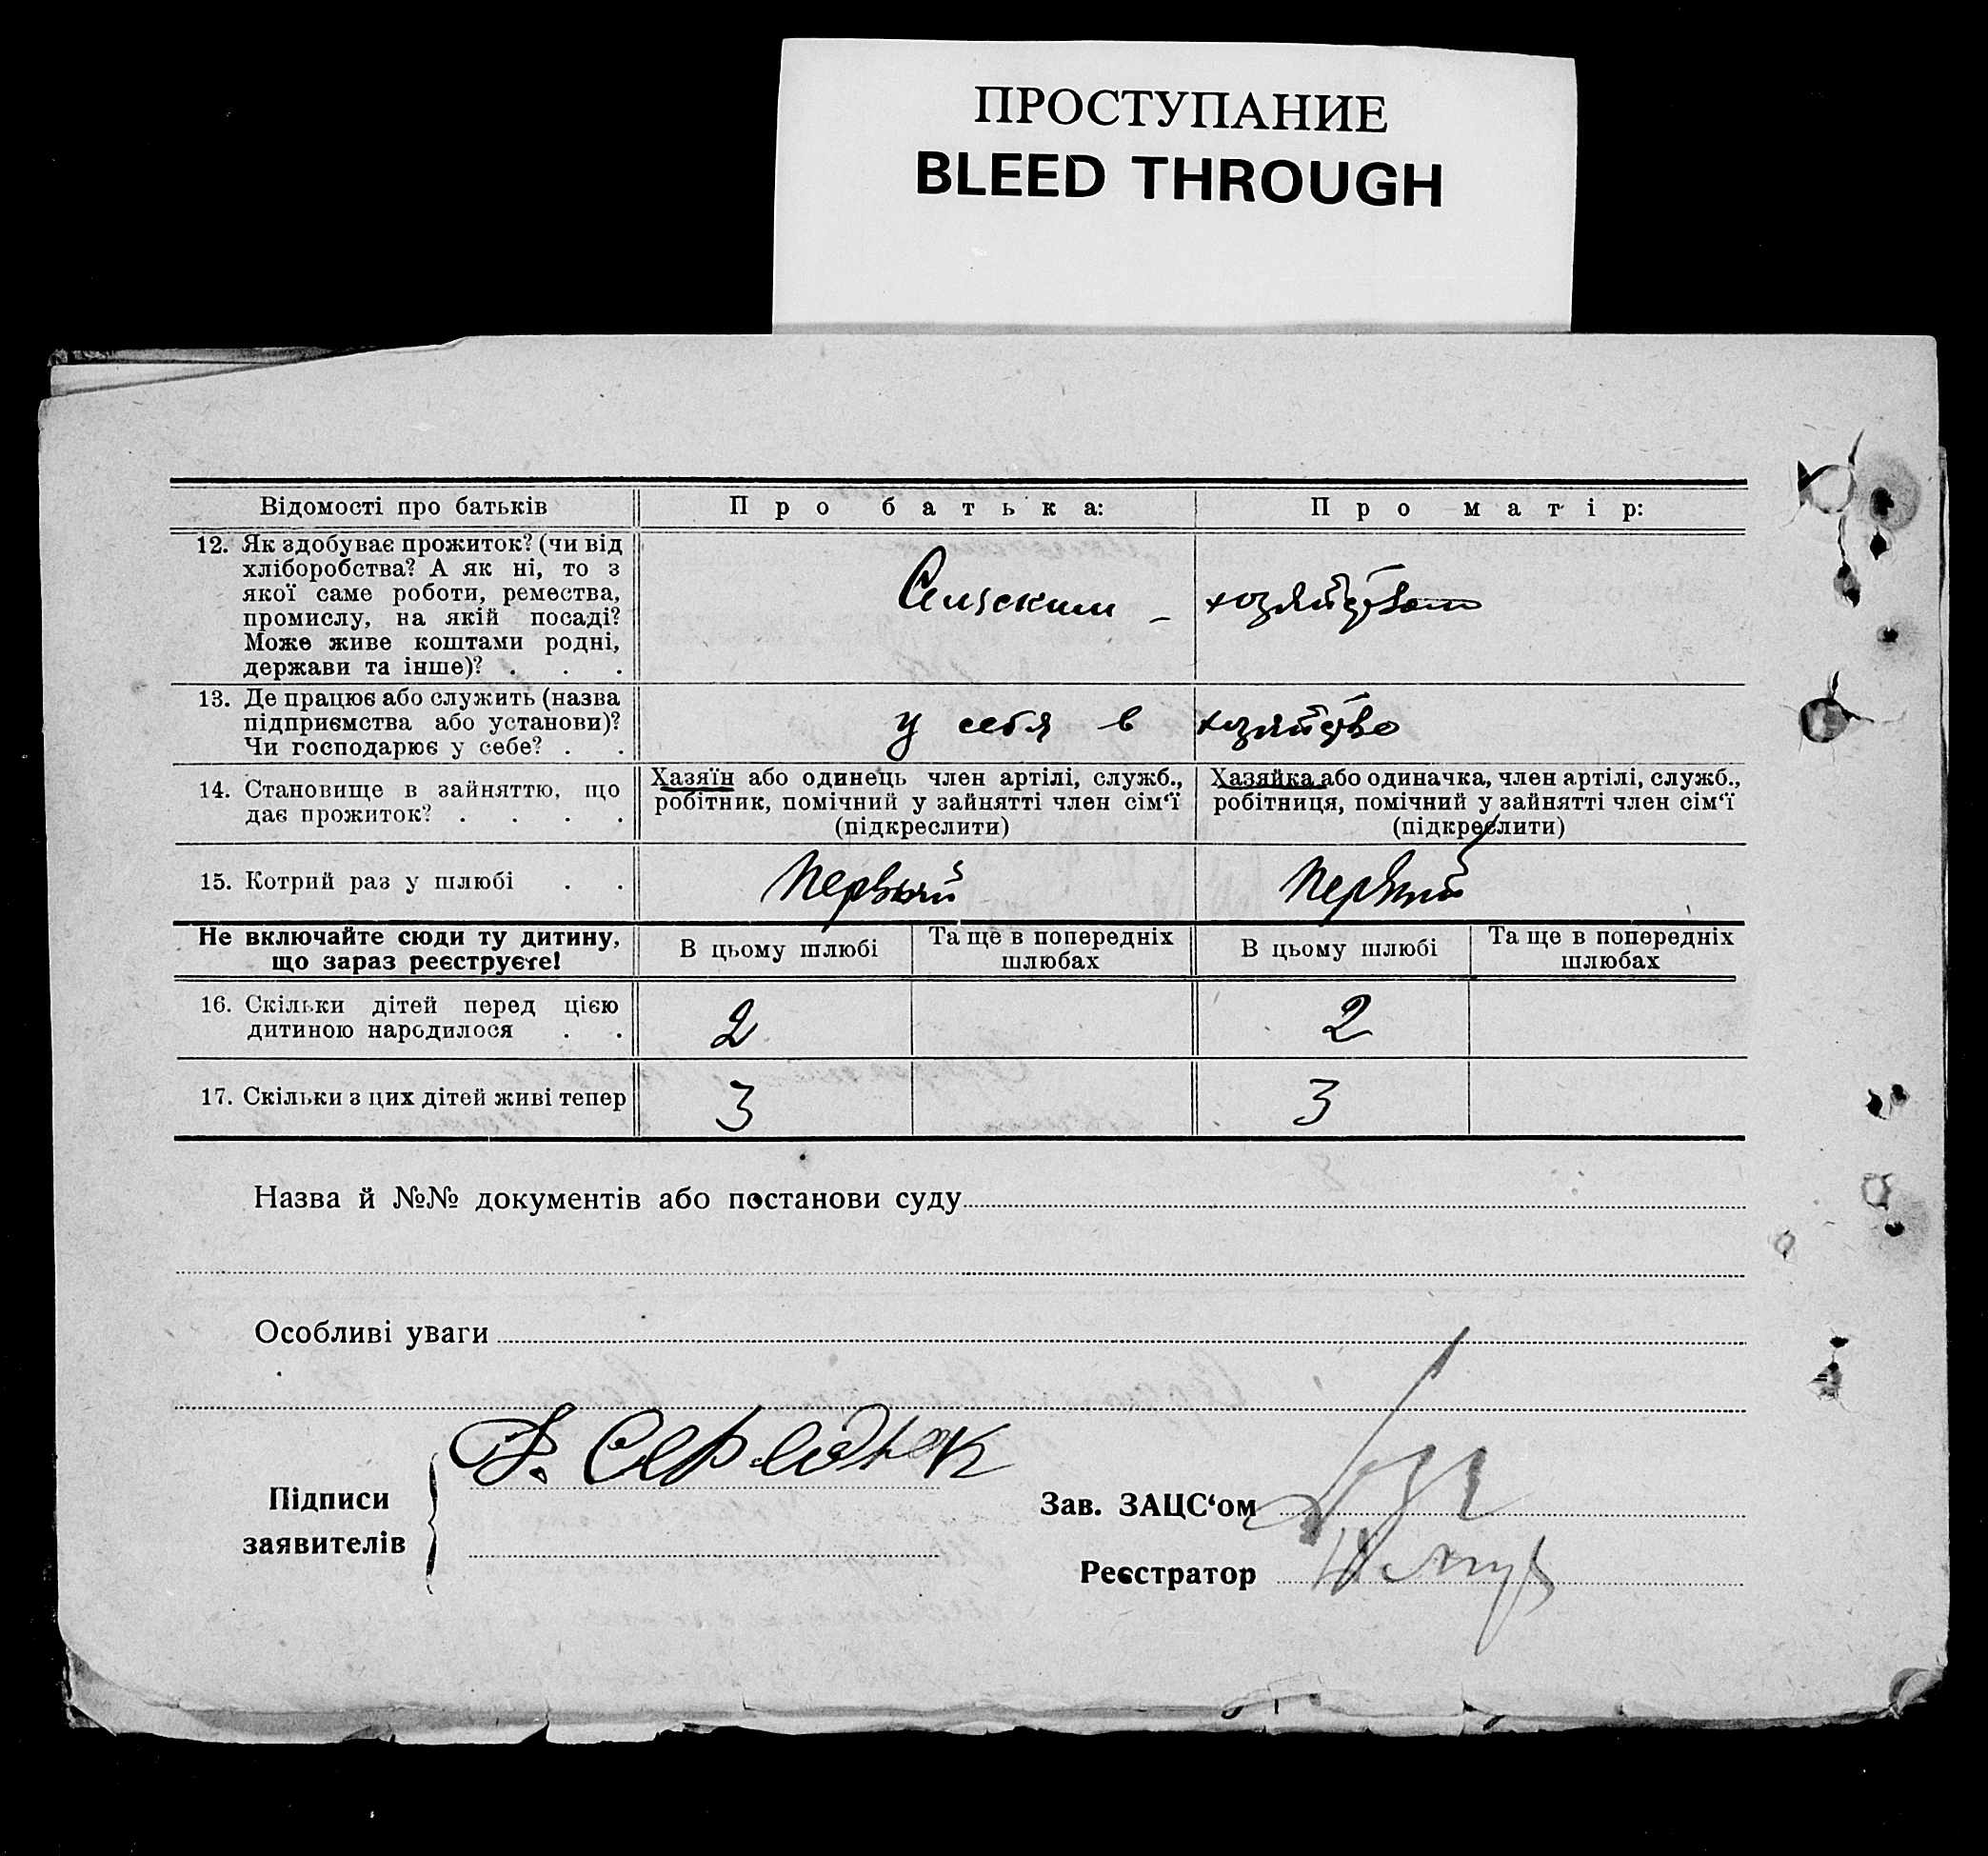 ПРОСТУПАНИЕ
BLEED THROUGH
Відомості про батьків
Про батька:
Про матір:
12. Як здобуває прожиток? (чи від
хліборобства? А як ні, то з
якої саме роботи, ремества,
промислу, на якій посаді?
Може живе коштами родні,
держави та інше)? . . .
Сельским - хозяйством
13. Де працює або служить (назва
підприємства або установи)?
Чи господарює у себе? . .
у себя в хозяйстве
14. Становище в зайняттю, що
дає прожиток? . . . .
Хазяїн або одинець член артілі, служб.,
робітник, помічний у зайнятті член сім‘ї
(підкреслити)
Хазяйка або одиначка, член артілі, служб.,
робітниця, помічний у зайнятті член сім‘ї
(підкреслити)
15. Котрий раз у шлюбі . .
первый
первый
Не включайте сюди ту дитину,
що зараз реєструєте!
В цьому шлюбі
Та ще в попередніх
шлюбах
В цьому шлюбі
Та ще в попередніх
шлюбах
16. Скільки дітей перед цією
дитиною народилося . .
2
2
17. Скільки з цих дітей живі тепер
3
3
Назва й №№ документів або постанови суду
Особливі уваги
Підписи
заявителів
Зав. ЗАЦС‘ом
Реєстратор